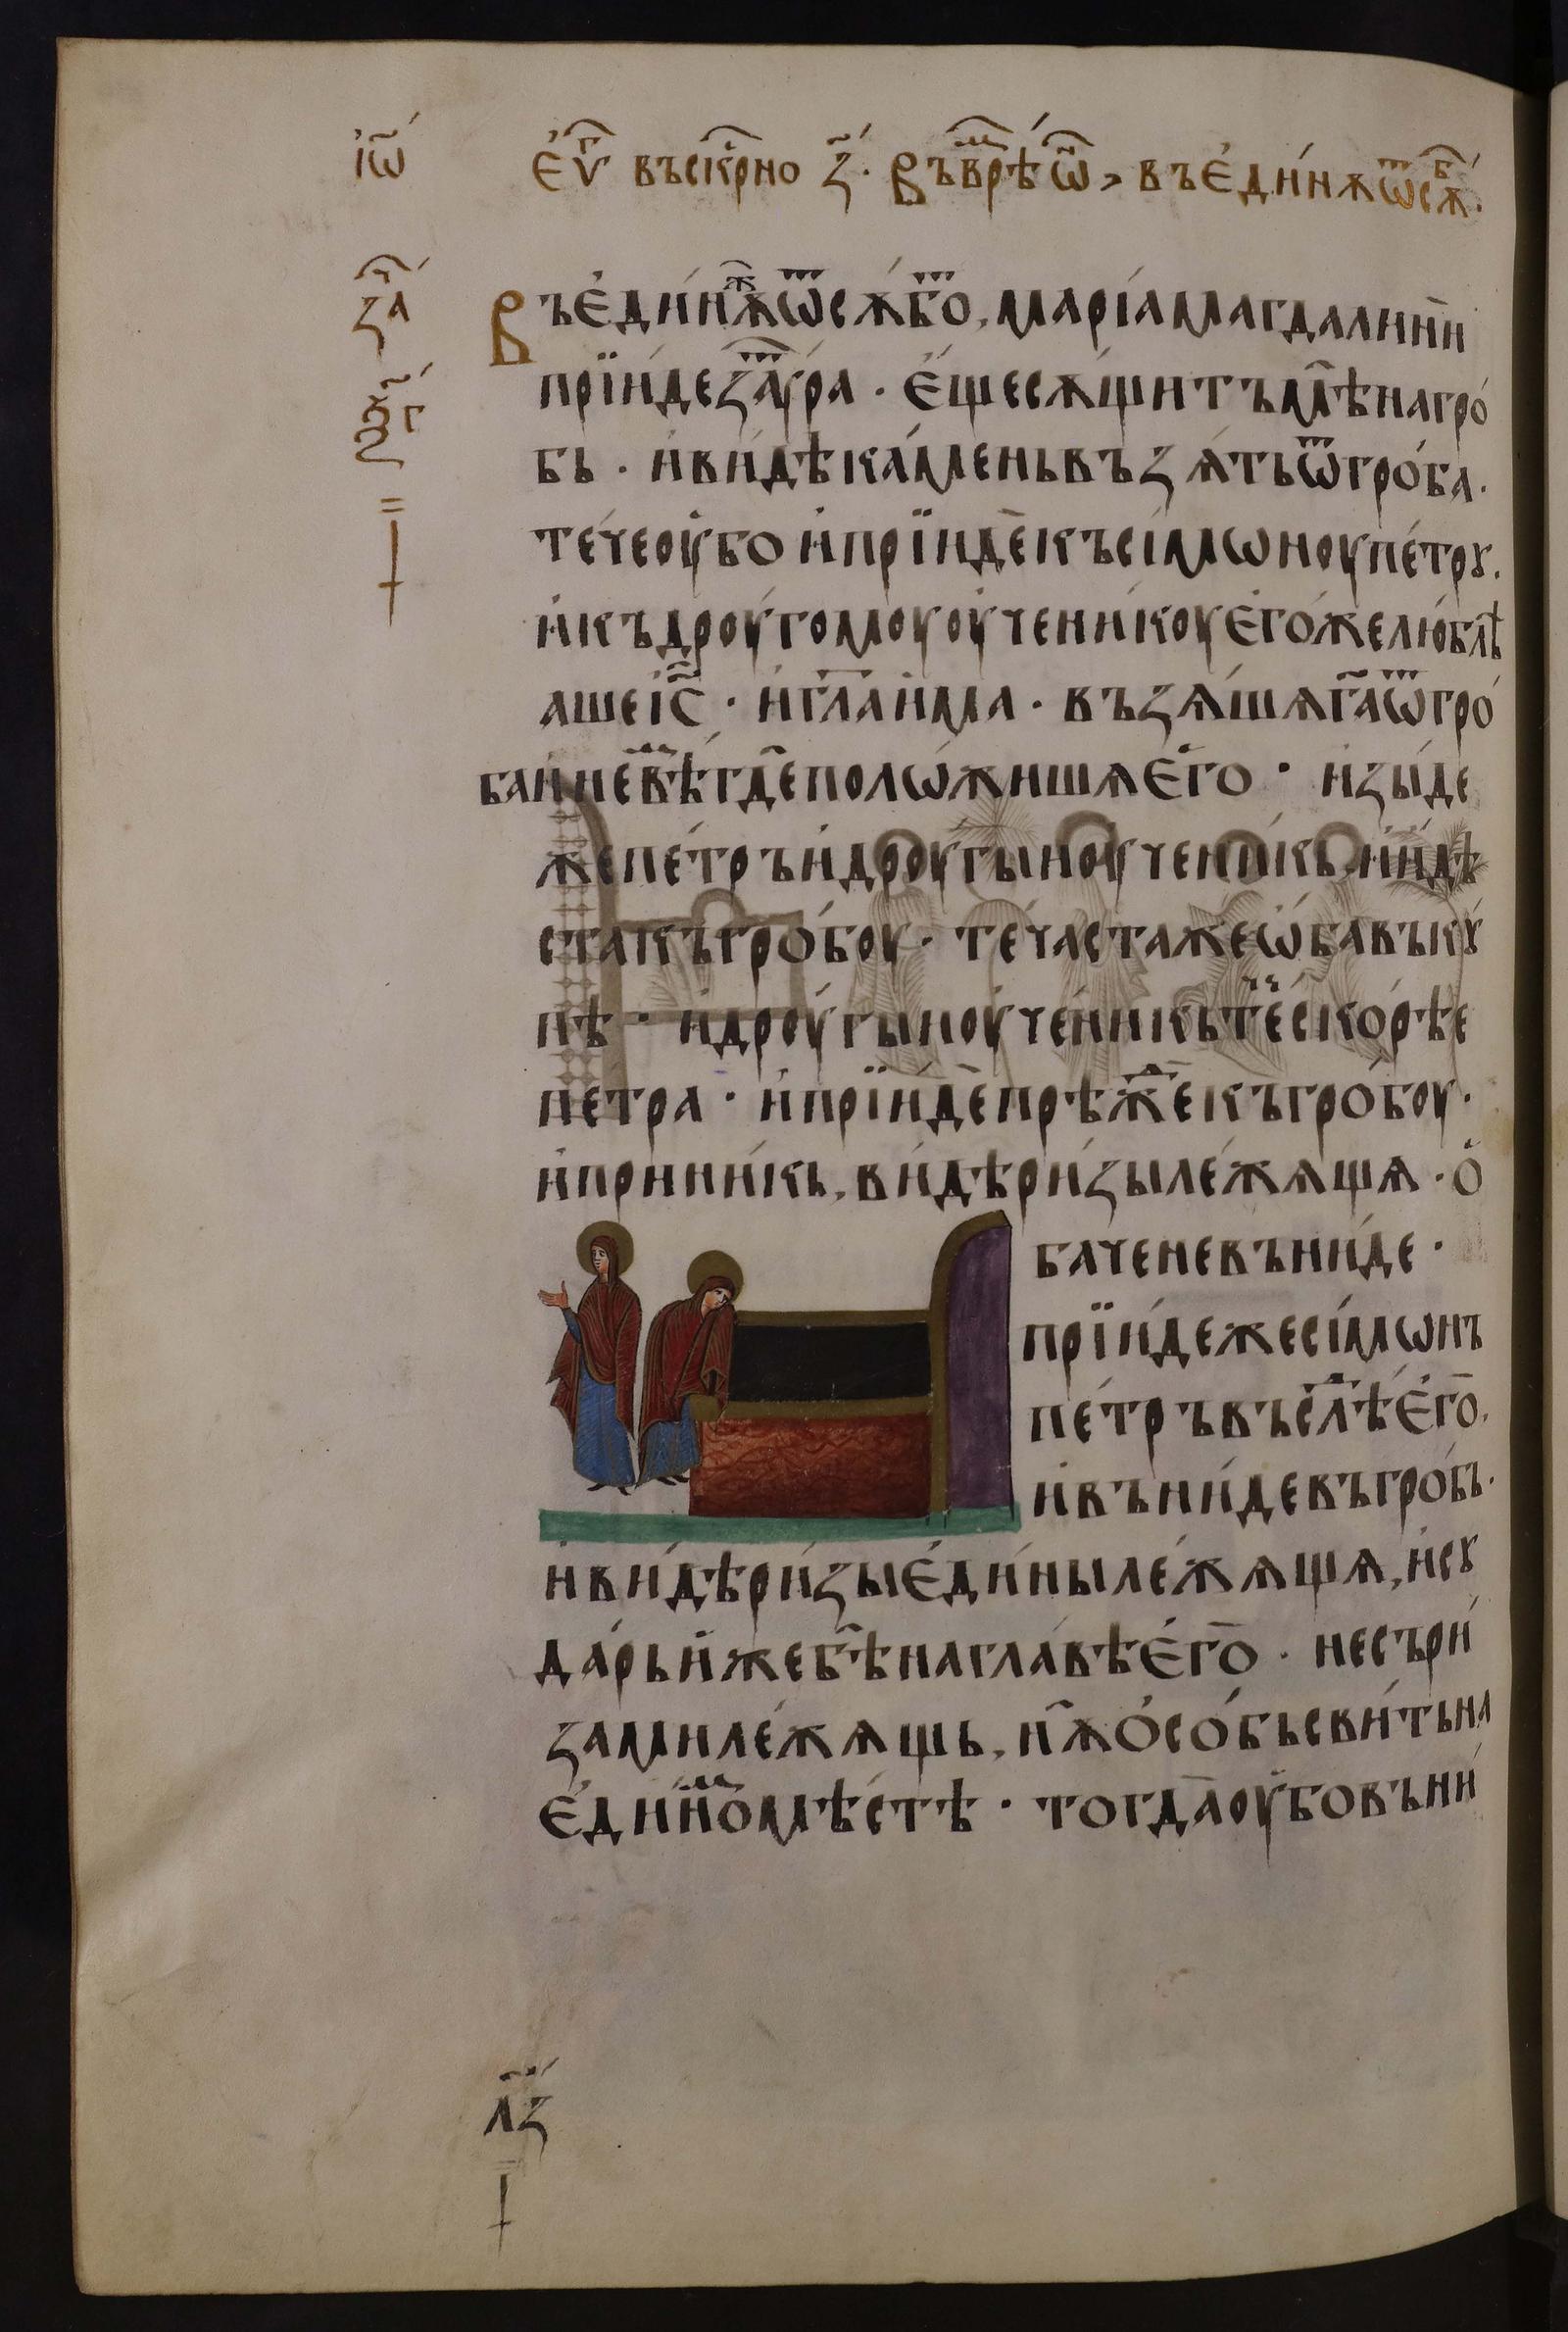 і҆ѡ҃
Є҆ѵⷢ҇ въскрⷭ҇но з҃ · Въ в҆рѣⷨ ѡ҆ⷩ҇ , въ є҆ди́нѫ ѿ сѫⷠ҇ ·
заⷱ҇
ѯ҃г
Въ є҆ди́нѫⷤ ѿ сѫбо́тъ , маріа магдалини
прїи́де заоу́тра · є҆щесѫ́щи тъмѣ̀ на гро́
бь · и҆ ви́дѣ ка́мень въ зѧ́ть ѿ гро́ба ·
те́че оу҆бо и҆ прїидѐ къ сі́мѡноу пе́трꙋ ·
и҆ къ дроу́гомоу оу҆чени́коу є҆го́же люблѣ̀
аше і҆с҃ · и҆ гл҃а и҆ма · въ зѧ́шѧ га҃ ѿ гро́
ба и҆ не вѣ́мь гдѐ поло́жишѧ є҆го · и҆зы́де
же пе́тръ и҆ дроу́гыи оу҆чени́кь , и҆ и҆дѣ́
ста къ гро́боу · те́часта же ѡ҆́ба въкꙋ́
пѣ · и҆ дроу́гыи оу҆чени́кь тече́ скорѣе
пе́тра · и҆ прїидѐ прѣ́жⷣе къ гро́боу ·
и҆ прини́кь , ви́дѣ ри́зы ле́жѧщѧ · о҆
баче не въни́де ·
прїи́де же сі́мѡнъ
пе́тръ въ слѣⷣ є҆го̀ ,
и҆ въни́де въ гро́бь ·
и҆ ви́дѣ ри́зы є҆ди́ны ле́жѧщѧ , и҆ сꙋ
да́рь и҆же бѣ̀ на гла́вѣ є҆го̀ · не съ ри́
зами ле́жѧщь , нѫ̀ о҆со́бь сви́ть на
є҆ди́номь мѣ́стѣ · тогда̀ оу҆бо въни́
л҃з